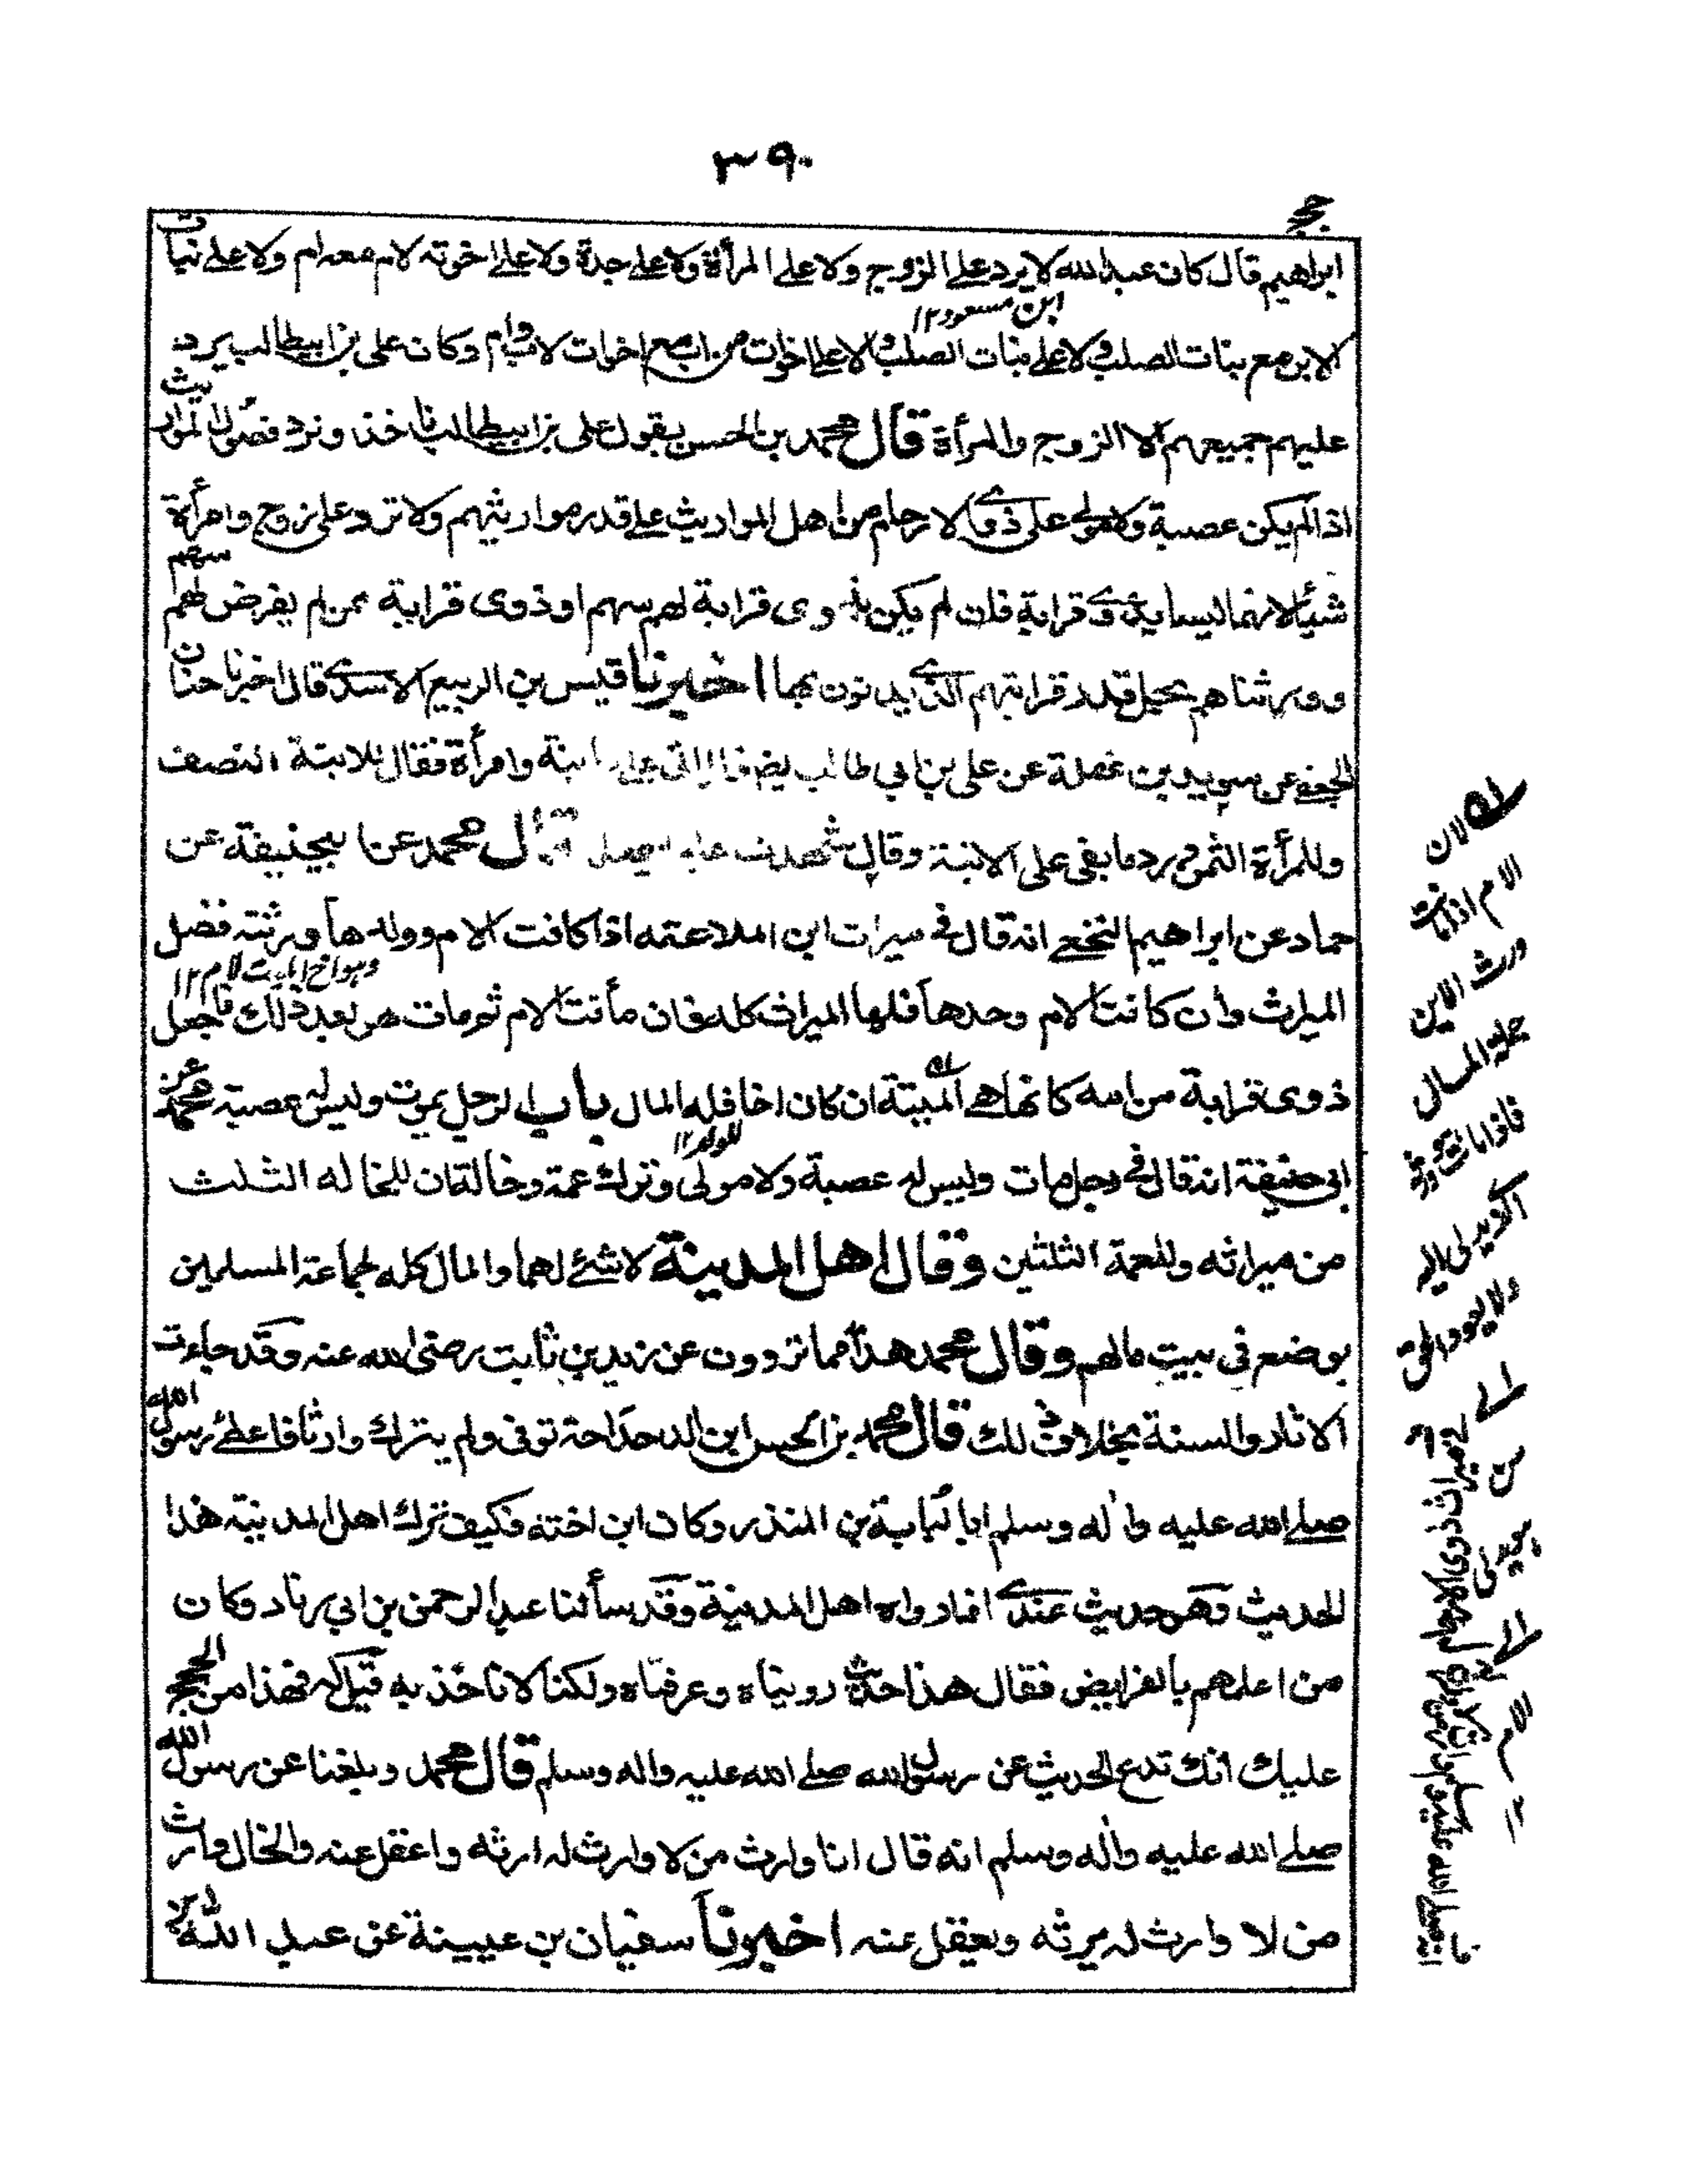 ٣٩٠
حجج
ابراهيم قال كان عبد الله لا يرد على الزوج ولا على المرأة ولا على جدة ولا على اخوته لام معه ام ولا على بنات
ابن مسعود ١٢
الابن مع بنات الصلب ولا على بنات الصلب ولا على اخوات من اب مع اخوات لاب وام وكان على بن ابيطالب يرد
عليهم جميعهم الا الزوج والمرأة قال محمد بن الحسن بقول على بن ابيطالب نا خذ ونرد فضول المواريث
اذا لم يكن عصبة ولا مولى على ذوى الارحام من اهل المواريث على قدر مواريثهم ولا نرد على زوج وامرأة
شيئا لانهما ليسا بذوى قرابة فان لم يكن بذوى قرابة لهم سهم او ذوى قرابة ممن لم يفرض لهم سهم
وورثناهم قدر قرابتهم الذى يدنون بها اخبرنا قيس بن الربيع الاسدى قال اخبرنا حنان
الجعفى عن سويد بن غفلة عن على بن ابى طالب ابنة وامرأة فقال للابنة النصف
وللمرأة الثمن ويرد ما بقى على الابنة وقال قال محمد عن ابيحنيفة عن
حماد عن ابراهيم النخعى انه قال فى ميراث ابن الملاعنه اذا كانت الام وولدها ورثته فضل
وهو اخ لام ١٢
الميراث وان كانت الام وحدها فلها الميراث كله فان مأتت الام ثم مات هو بعد ذلك فاجعل
ذوى قرابة من امه كانها هى الميتة ان كان اخا فله المال باب الرجل يموت وليس له عصبة محمد عن
للولد ١٢
ابى حنيفة انه قال فى رجل مات وليس له عصبة ولا مولى وترك عمة وخالة ان للخاله الثلث
من ميراثه وللعمة الثلثين وقال اهل المدينة لا شئ لهما والمال كله لجماعة المسلمين
يوضع فى بيت مالهم وقال محمد هذا مما تروون عن زيد بن ثابت رضى الله عنه وقد جاءت
الاثار والسنة بخلاف ذلك قال محمد بن الحسن ابن الدحداحة توفى ولم يترك وارثا فاعطى رسول الله
صلى الله عليه واله وسلم ابا لبابة بن المنذر وكان ابن اخته فكيف ترك اهل المدينة هذا
الحديث وهو حديث عندى انما رواه اهل المدينة وقد سألنا عبد الرحمن بن ابى زناد وكان
من اعلمهم بالفرايض فقال هذا حديث رويناه وعرفناه ولكنا لا ناخذ به قيل له فهذا من الحجج
عليك انك تدع الحديث عن رسول الله صلى الله عليه واله وسلم قال محمد وبلغنا عن رسول الله
صلى الله عليه واله وسلم انه قال انا وارث من لا وارث له ارثه واعقل عنه والخال وارث
من لا وارث له يرثه ويعقل عنه اخبرنا سفيان بن عيينة عن عبد الله بن
لان
الام اذا كانت
ورث الابن
جملة المال
فاذا ماتت ورثه
ولا يعود الحق
الى
من
يدلى
الى
الام
١٢